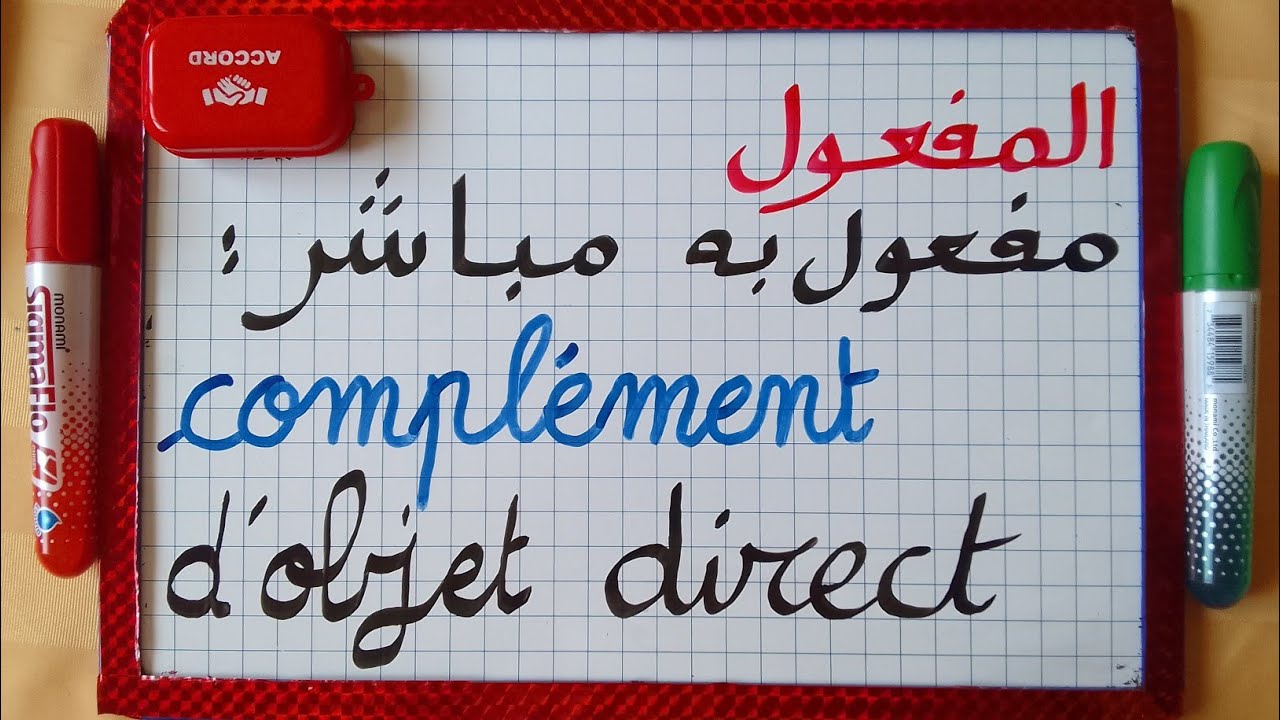 ACCORD
المفعول
مفعول به مباشر :
complément
d'objet direct
monami
SigmaFlo
monami Co., Ltd